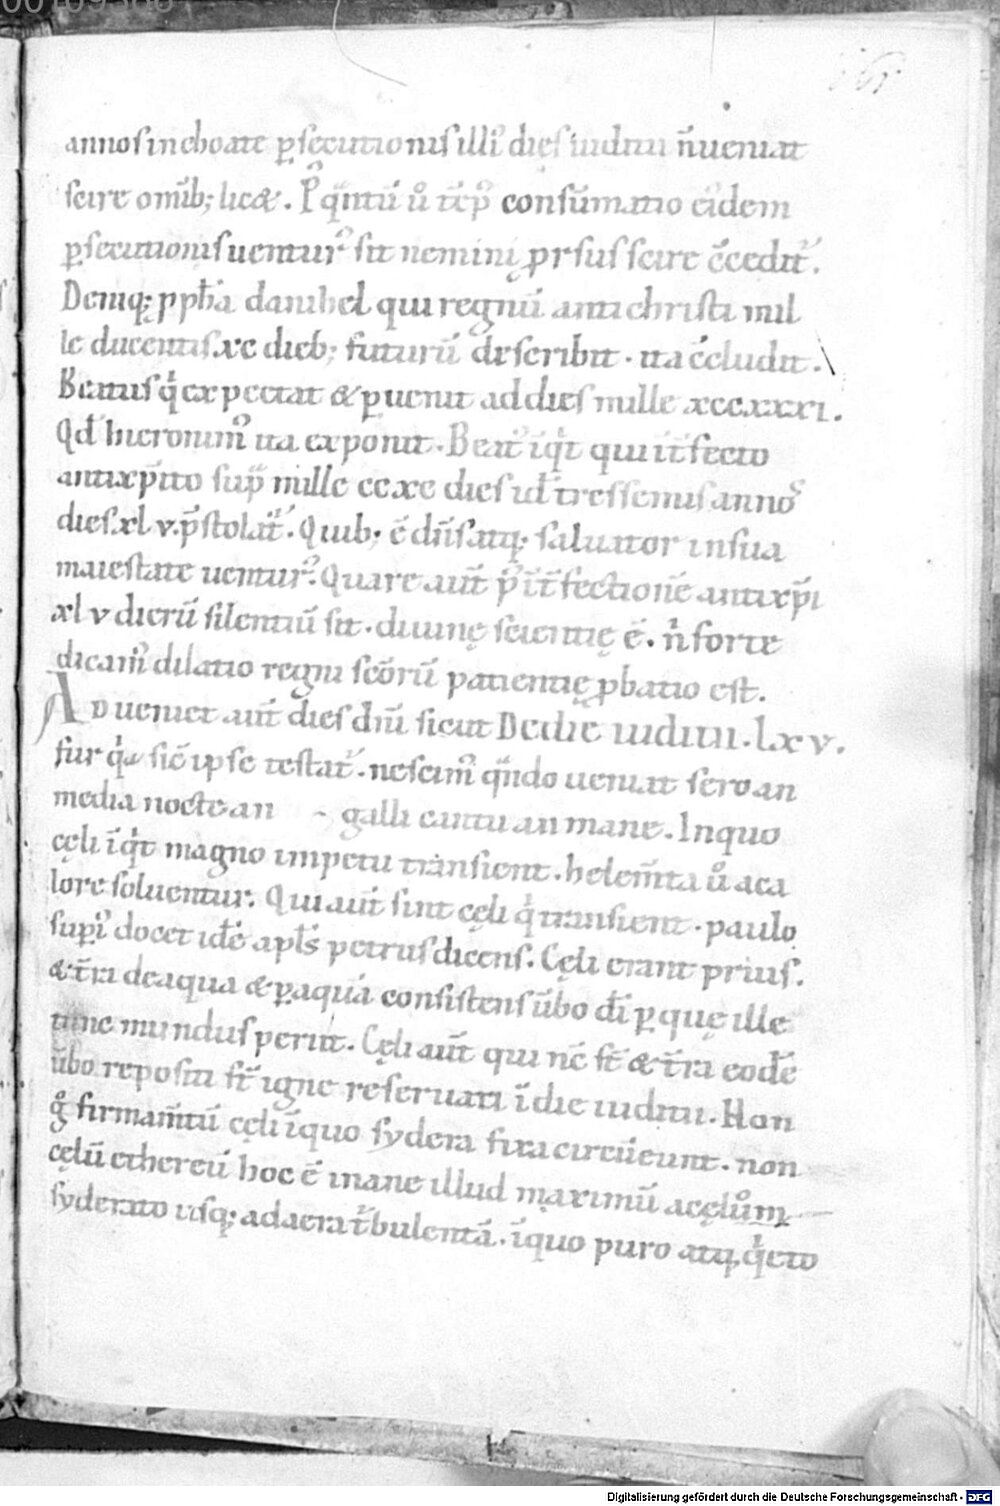 annos inchoate ꝑsecutionis illi᷒ dies iuditii n̄ ueniat
scire omīb; licet. P᷒ q̈ntū u̇ tēp᷒ consūmatio eidem
ꝑsecutionis uentur᷒ sit nemini ꝓrsus scire c̄cedit᷒.
Deniq; ꝓph̄a danihel qui regnū antichristi mil
le ducentis.xc dieb; futurū describit. ita c̄cludit.
Beatus q̇ expectat & ꝑuenit ad dies mille xccxxxi.
Qd̄ hieronim᷒ ita exponit. Beat᷒ īqt qui īt̄fecto
antixp̄ito sup̄ mille ccxc dies id̄ tres semis annos
dies.xlv.p̄stolat᷒. Quib; ē dn̄s atq; saluator in sua
maiestate uentur᷒. Quare aūt p᷒ īt̄fectionē antixp̄i
xlv dierū silentiū sit. diuinę scientię ē. n̄ forte
dicam᷒ dilatio regni scōrū patientię ꝓbatio est.
Adueniet aūt dies dn̄i sicut De die iuditii. lxv.
fur q̇a sic̄ ipse testat᷒. nescim᷒ q̈ndo ueniat sero an
media nocte an galli cantu an mane. In quo
cęli īqt magno impetu transient. helem̄ta u̇ a ca
lore soluentur. Qui aūt sint cęli q̇ transient. paulo
sup̄i᷒ docet idē apl̄s petrus dicens. Cęli erant prius.
& t̄ra de aqua & ꝑ aquā consistens ūbo dī ꝑ quę ille
tunc mundus periit. Cęli aūt qui nc̄ st̄ & t̄ra eodē
ūbo repositi st̄ igne reseruati ī die iuditii. Non
g̊ firmam̄tū cęli ī quo sydera fixa circūeunt. non
cęlū ethereū hoc ē inane illud maximū a cęlo um
syderato usq; ad aera t̄bulentā. ī quo puro atq; q̇eto
Digitalisierung gefördert durch die Deutsche Forschungsgemeinschaft - DFG